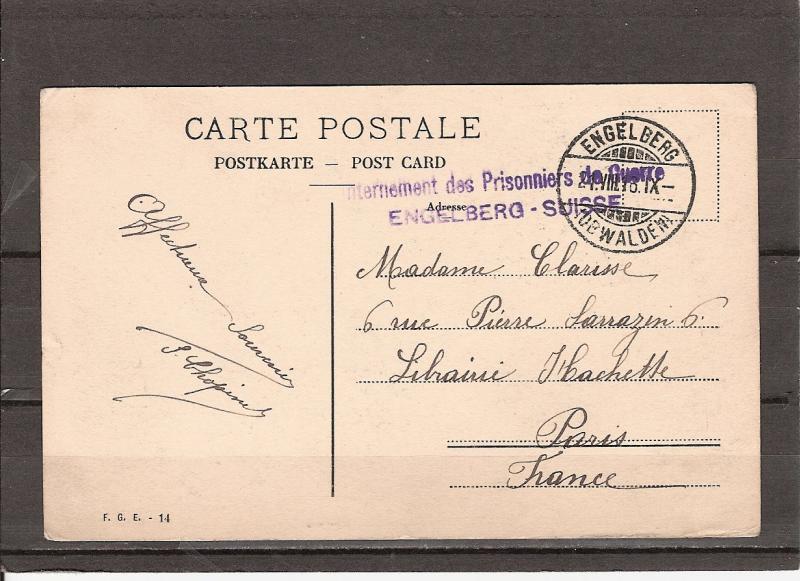 CARTE POSTALE
POSTKARTE — POST CARD
Internement des Prisonniers de Guerre
ENGELBERG - SUISSE
Adresse
ENGELBERG
21.VIII.16.IX–
(OBWALDEN)
Affectueux
Souvenir
Madame Clarisse
6 rue Pierre Sarrazin 6
Librairie Hachette
Paris
France
F. G. E. - 14